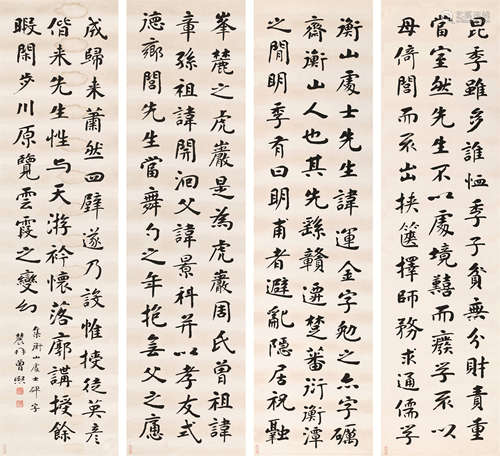 昆季雖多誰恤季子貧無分財責重
當室然先生不以處境囏而癈學不以
母倚閭而不出挾篋擇師務求通儒學
衡山處士先生諱運金字勉之亦字礪
齊衡山人也其先繇贛遷楚蕃衍衡潭
之閒明季有曰明甫者避亂隱居祝融
峯麓之虎巖是為虎巖周氏曾祖諱
章孫祖諱開洄父諱景科并以孝友式
德鄉閭先生當舞勺之年抱無父之慮
成歸來蕭然四壁遂乃設帷授徒英彥
偕來先生性与天游衿懷落廓講授餘
暇閑步川原覽雲霞之變幻
集衡山處士碑字
農髯曾熙